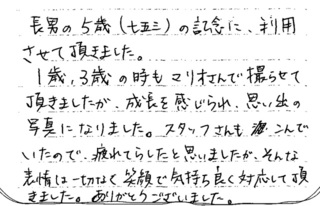 長男の5歳(七五三)の記念に、利用
させて頂きました。
1歳、3歳の時もマリオさんで撮らせて
頂きましたが、成長を感じられ、思い出の
写真になりました。スタッフさんも こんで
いたので、疲れてらしたと思いましたが、そんな
表情は一切なく笑顔で気持ち良く対応して頂
きました。ありがとうございました。